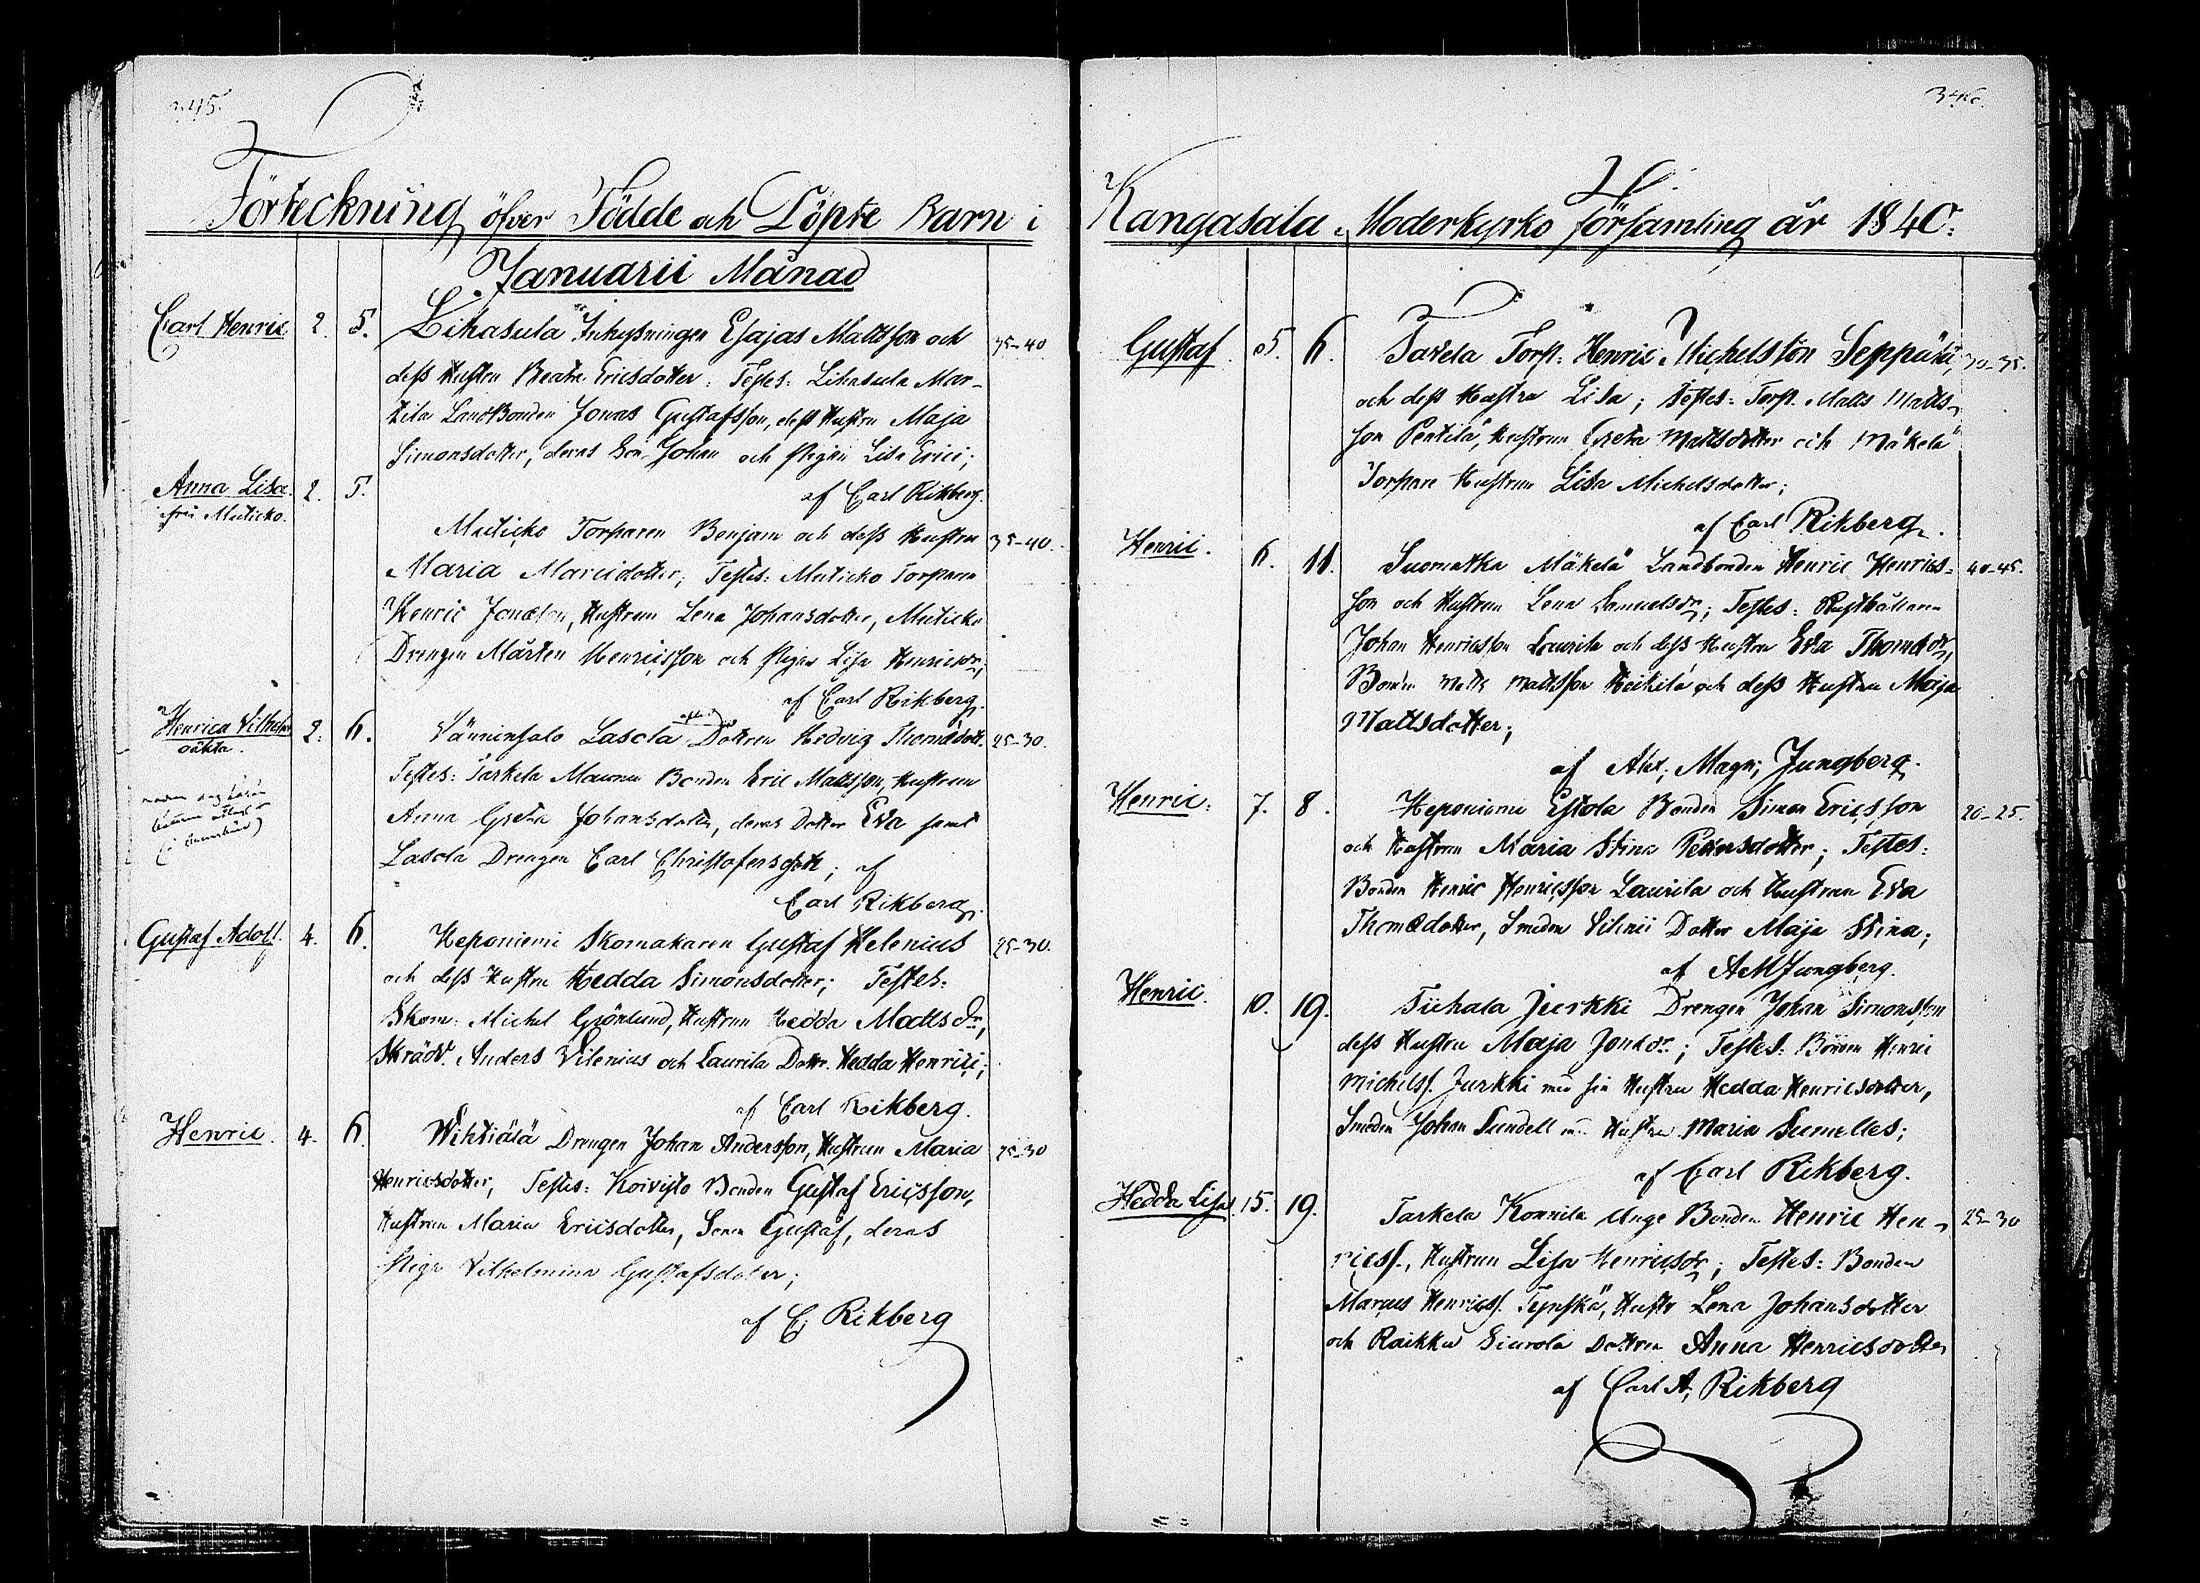 345.
Förteckning öfver Födde och Döpte Barn i
Januarii Månad
Carl Henric 2. 5. Lihasula Inhysningen Esajas Mattsson och 35-40
dess Hustru Beata Ericsdotter. Testes: Lihasula Mar-
tila Landbonden Jonas Gustafsson, dess Hustru Maja
Simonsdotter, deras Son Johan och Pigan Lisa Erici;
af Carl Rikberg.
Anna Lisa. 2. 5.
från Muticko.
Muticko Torparen Benjam och dess Hustru 35-40.
Maria Marcidotter, Testes: Muticko Torparen
Henric Jonæson, Hustrun Lena Johansdotter, Muticko
Drengen Mårten Henricsson och Pigan Lisa Henricsdr;
af Carl Rikberg.
Henrica Vilhelm 2. 6. Vänninsalo Lascla Dottren Hedvig Thomædott. 25-30.
oäkta.
Testes: Tarkela Maunu Bonden Eric Mattsson, Hustrun
Anna Greta Johansdotter, deras Dotter Eva samt
Lascla Drengen Carl Christofersson; af
Carl Rikberg.
Gustaf Adolf. 4. 6. Heponiemi Skomakaren Gustaf Helenius 25-30.
och dess Hustru Hedda Simonsdotter; Testes:
Skom. Michel Grönlund, Hustrun Hedda Matts dr,
Skrädd. Anders Vilenius och Laurila Dottr. Hedda Henrici;
af Carl Rikberg.
Henric. 4. 6. Wihtiälä Drengen Johan Andersson, Hustrun Maria 25-30
Henricsdotter, Testes: Koivisto Bonden Gustaf Ericsson,
Hustrun Maria Ericsdotter, Sonen Gustaf, deras
Piga Vilhelmina Gustafsdoter;
af C; Rikberg
346.
Kangasala Moderkyrko församling år 1840.
Gustaf. 5. 6. Tavela Torp. Henric Michelsson Seppälä, 30-35.
och dess Hustru Lisa; Testes: Torp. Matts Matts-
son Pentilä, Hustrun Greta Mattsdotter och Mäkelä
Torpare Hustrun Lisa Michelsdotter;
af Carl Rikberg.
Henric. 6. 11. Suomatka Mäkelä Landbonden Henric Henrics- 40-45.
son och Hustrun Lena Samuelsdr; Testes: Rusthållaren
Johan Henricsson Laurila och dess Hustru Eva Thomædr,
Bonden Matts Mattsson Heikilä och dess Hustrun Maja
Mattsdotter;
af Alex; Magn; Jungberg.
Henric. 7. 8. Heponiemi Estola Bonden Simon Ericsson 20-25.
och Hustrun Maria Stina Pettersdotter; Testes:
Bonden Henric Henricsson Laurila och Hustrun Eva
Thomædotter, Smeden Vilenii Dotter Maja Stina;
af AMJungberg.
Henric. 10. 19. Tiihala Jurkki Drengen Johan Simonsson
dess Hustru Maja Jonædr.; Testes: Bonden Henric
Michelss. Jurkki med sin Hustru Hedda Henricsdotter,
Smeden Johan Sundell med Hustru Maria Sumelles;
af Carl Rikberg.
Hedda Lisa. 15. 19. Tarkela Konnila Unge Bonden Henric Hen- 25-30
ricss., Hustrun Lisa Henricsdr; Testes: Bonden
Marcus Henricss. Typpskä, Hustr Lena Johansdotter
och Raikku Siurola Dottren Anna Henricsdotter
af Carl A; Rikberg